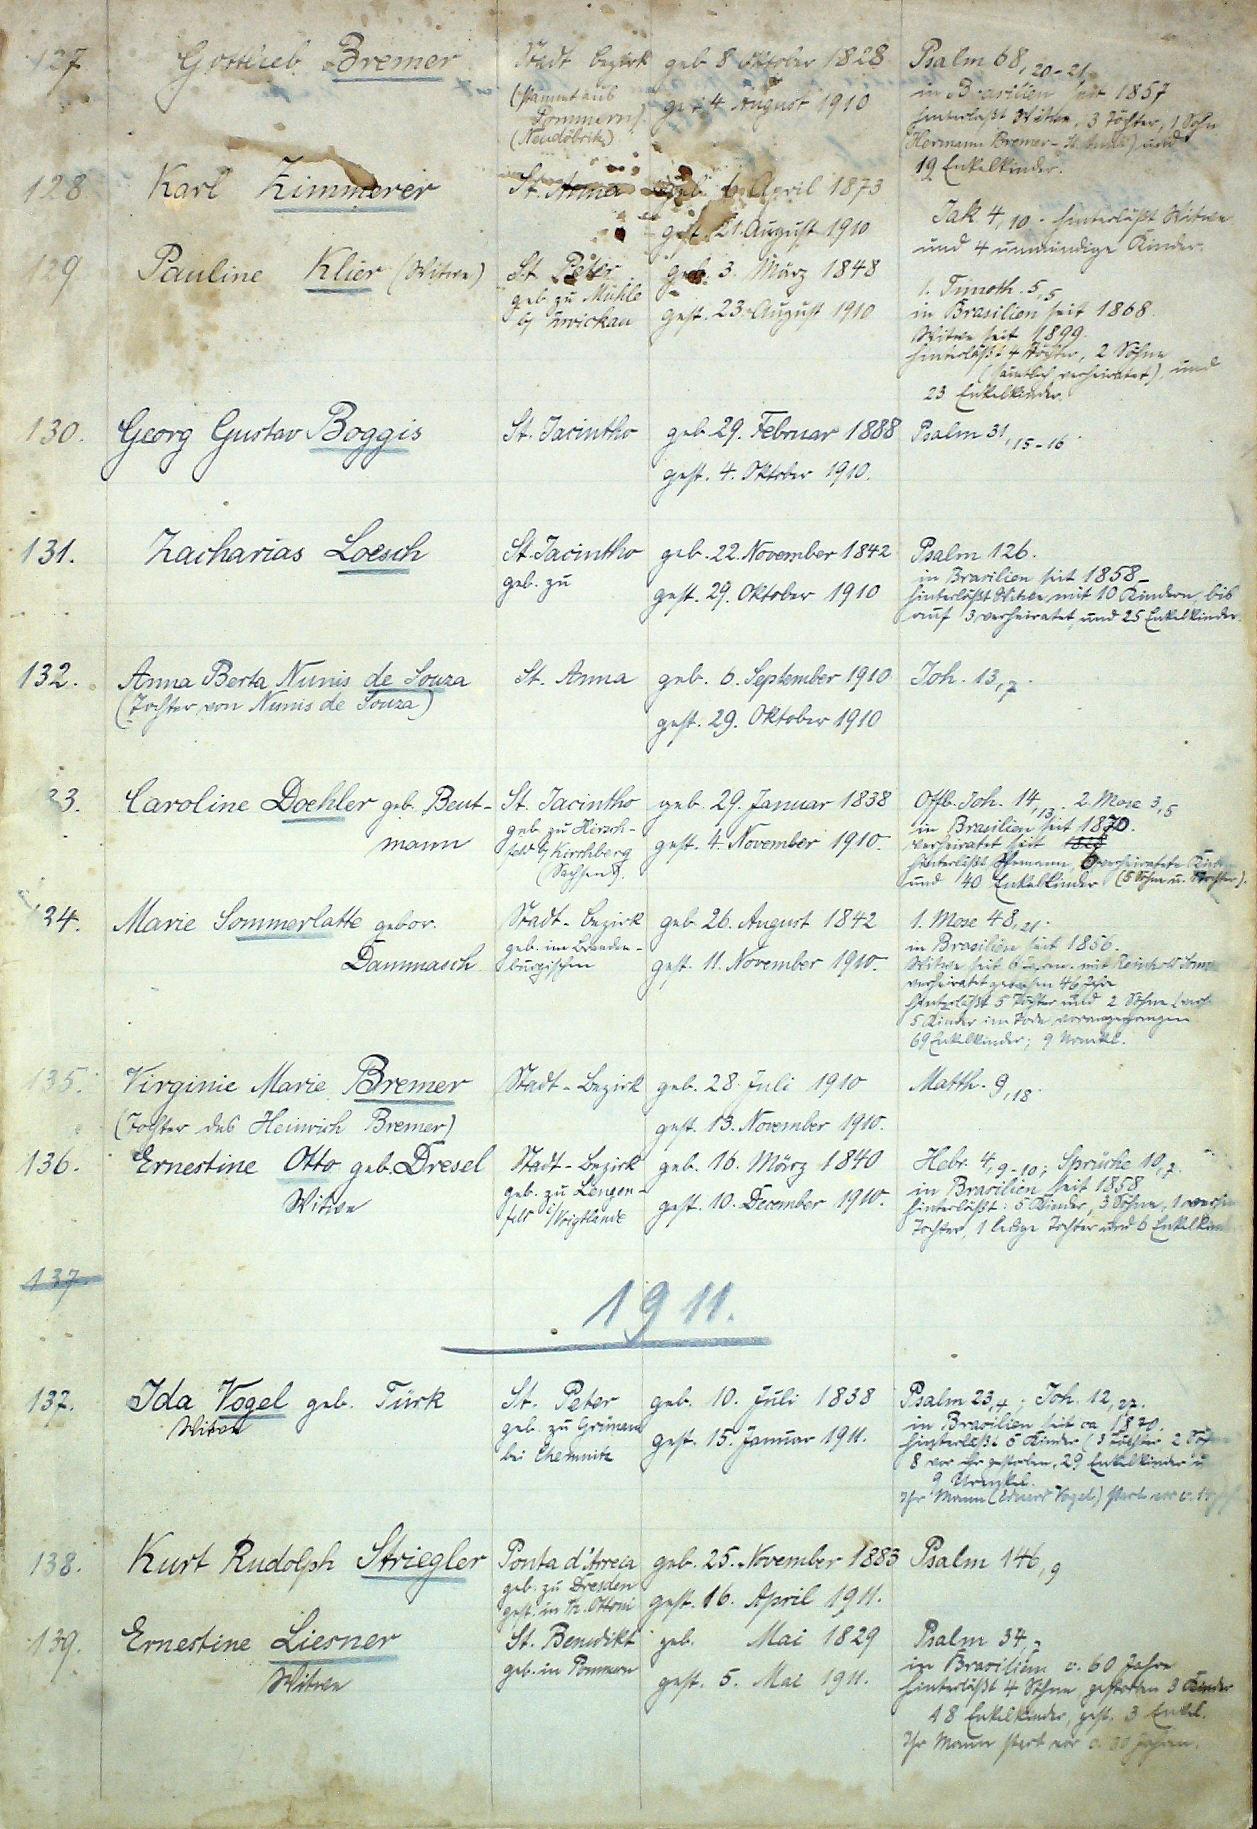 127 Gottlieb Bremer Stadt bezirk geb 8 Oktober 1828 Psalm 68, 20-21
(stammt aus Pommern) gest 4. August 1910 in Brasilien seit 1857
(Neudöbritz) hinterläßt Witwe, 3 Töchter, 1 Sohn
Hermann Bremer - St. Anna) und
19 Enkelkinder.
128 Karl Zimmerer St. Anna geb. April 1873
gest. 21. August 1910 Jak 4, 10. hinterläßt Witwe
und 4 unmündige Kinder.
129 Pauline Klier (Witwe) St. Peter geb. 3. März 1848 1. Timoth. 5, 5
geb. zu Mühle gest. 23. August 1910 in Brasilien seit 1868
b/ Zwickau Witwe seit 1899
hinterläßt 4 Töchter, 2 Söhne
(sämtlich verheiratet) und
23 Enkelkinder.
130. Georg Gustav Boggis St. Jacintho geb 29. Februar 1888 Psalm 31, 15-16
gest. 4. Oktober 1910.
131. Zacharias Loesch St. Jacintho geb. 22. November 1842 Psalm 126.
geb. zu gest. 29. Oktober 1910 in Brasilien seit 1858
hinterläßt Witwe mit 10 Kindern, bis
auf 3 verheiratet, und 25 Enkelkinder.
132. Anna Berta Nunis de Souza St. Anna geb. 6. September 1910 Joh. 13, 7.
(Tochter von Nunis de Souza) gest. 29. Oktober 1910
33. Caroline Doehler geb. Beut- St. Jacintho geb. 29. Januar 1838 Offb. Joh. 14, 13. 2. Mose 3, 5
mann geb. zu Hirsch- gest. 4. November 1910. in Brasilien seit 1870.
feld b/ Kirchberg verheiratet seit
(Sachsen). hinterläßt Ehemann, 6 verheiratete
und 40 Enkelkinder (5 Söhne u. Tochter).
134. Marie Sommerlatte gebor. Stadt-Bezirk geb. 26. August 1842 1. Mose 48, 21.
Dammasch geb. im Branden- gest. 11. November 1910. in Brasilien seit 1856.
burgischen Witwe seit 6 Jahren. mit Reinhold
verheiratet gewesen 46 Jahre
hinterläßt 5 Töchter und 2 Söhne
5 Kinder im Tode vorangegangen
69 Enkelkinder; 9 Urenkel.
135. Virginie Marie Bremer Stadt-Bezirk geb. 28. Juli 1910 Matth. 9, 18.
(Tochter des Heinrich Bremer) gest. 13. November 1910.
136. Ernestine Otto geb. Dresel Stadt-Bezirk geb. 16. März 1840 Hebr. 4, 9-10; Sprüche 10, 7.
Witwe geb. zu Lengen- gest. 10. December 1910. in Brasilien seit 1858
feld i/Voigtlande hinterläßt: 5 Kinder, 3 Söhne, 1
Tochter, 1 ledige Tochter und 6
137.
1911.
137. Ida Vogel geb. Türk St. Peter geb. 10. Juli 1838 Psalm 23, 4; Joh. 12,
Witwe geb. zu Grünau gest. 15. Januar 1911. in Brasilien seit ca 1870.
bei Chemnitz hinterläßt 5 Kinder (3 Töchter 2
8 vor ihr gestorben, 29 Enkelkinder u
9 Urenkel.
Ihr Mann (Eduard Vogel) starb vor
138. Kurt Rudolph Striegler Ponta d'Areia geb. 25. November 1883 Psalm 146, 9
geb. zu Dresden gest. 16. April 1911.
gest. in Th. Ottoni
139. Ernestine Liesner St. Benedikt geb. Mai 1829 Psalm 34,
Witwe geb. in Pommern gest. 5. Mai 1911. in Brasilien c. 60 Jahre
hinterläßt 4 Söhne gestorben 3 Kinder
18 Enkelkinder, gest. 3 Enkel.
Ihr Mann starb vor c. 30 Jahren.